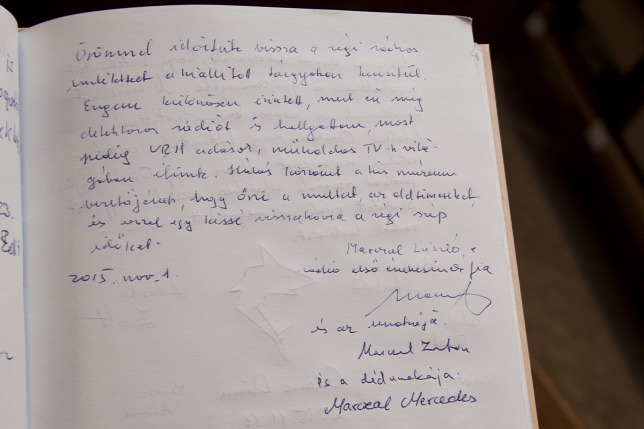 Örömmel időztünk vissza a régi rádios
emlékeket a kiállított tárgyakon keresztül.
Engem különösen érintett, mert én még
detektoros rádiót is hallgattam, most
pedig URH adások, műholdas TV-k vilá-
gában élünk. Hálás köszönet a kis múzeum
vezetőjének, hogy őrzi a multat, az oldtimereket
és ezzel egy kissé visszahozza a régi szép
időket.
2015. nov. 1.
Marczal László, a
rádió első énekesének fia
és az unokája.
Marczal Zoltan
és a dédunokája.
Marczal Mercedes